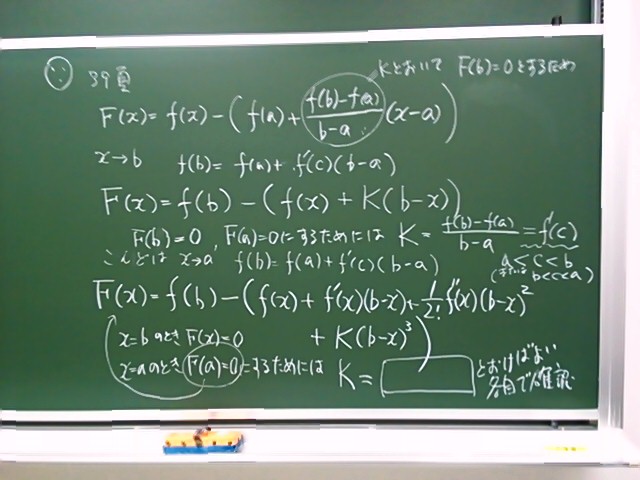 ∵ 39頁
Kとおいて F(b)=0とするため
F(x)= f(x) - ( f(a) + \frac{f(b)-f(a)}{b-a} (x-a) )
x→b f(b)= f(a)+ f'(c)(b-a)
F(x)= f(b) - ( f(x) + K(b-x) )
F(b)=0, F(a)=0にするためには K = \frac{f(b)-f(a)}{b-a} = f'(c)
a<c<b
(または b<c<a)
こんどは x→a f(b)= f(a)+f'(c)(b-a)
F(x)= f(b) - ( f(x)+ f'(x)(b-x)+ \frac{1}{2!} f''(x)(b-x)^2
+ K(b-x)^3 )
x=bのとき F(x)=0
x=aのとき F(a)=0にするためには K= とおけばよい
各自で確認